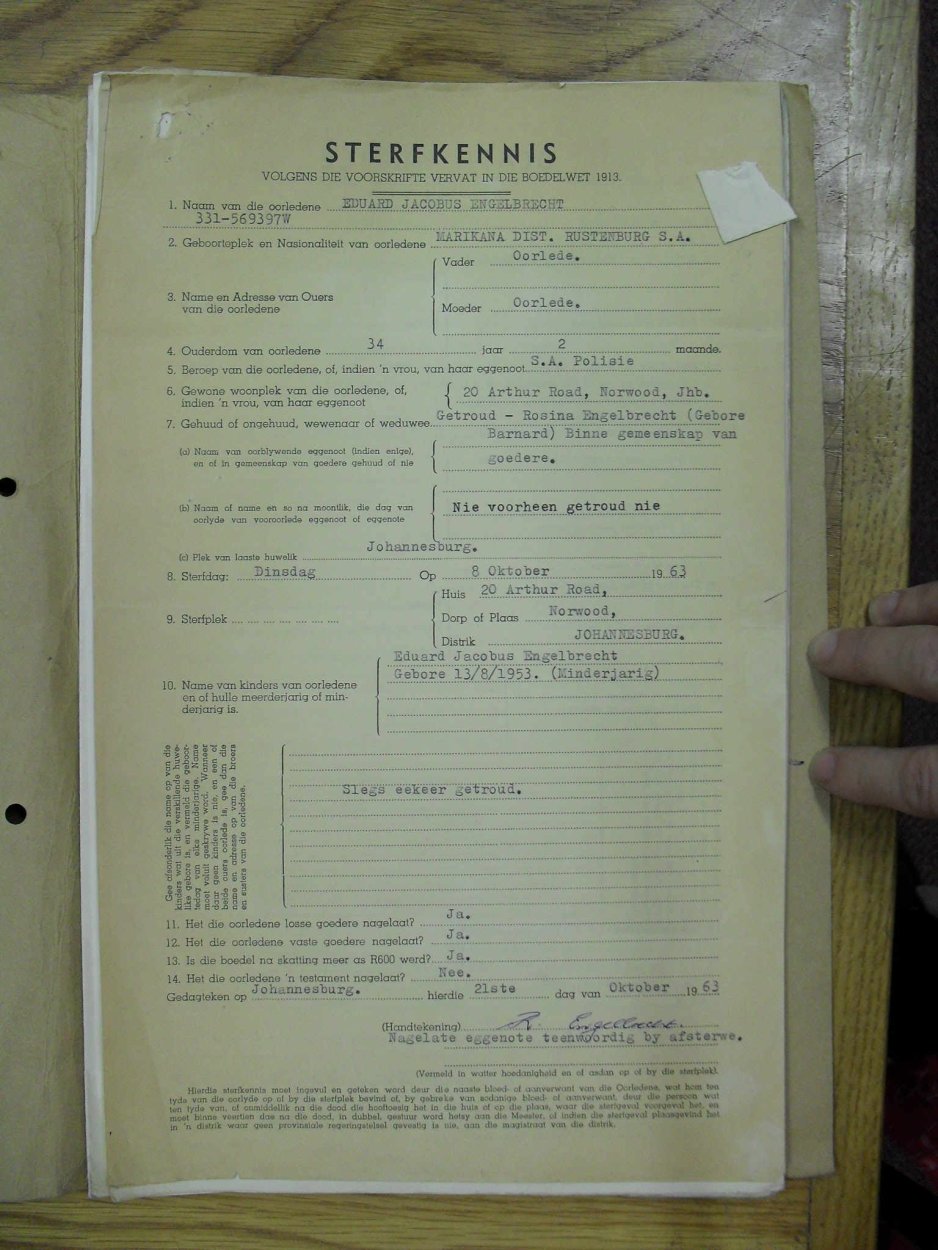 STERFKENNIS
VOLGENS DIE VOORSKRIFTE VERVAT IN DIE BOEDELWET 1913.
1. Naam van die oorledene EDUARD JACOBUS ENGELBRECHT
331-569397W
2. Geboorteplek en Nasionaliteit van oorledene MARIKANA DIST. RUSTENBURG S.A.
3. Name en Adresse van Ouers van die oorledene
Vader Oorlede.
Moeder Oorlede.
4. Ouderdom van oorledene 34 jaar 2 maande.
5. Beroep van die oorledene, of, indien 'n vrou, van haar eggenoot S.A. Polisie
6. Gewone woonplek van die oorledene, of, indien 'n vrou, van haar eggenoot
20 Arthur Road, Norwood, Jhb.
7. Gehuud of ongehuud, wewenaar of weduwee Getroud - Rosina Engelbrecht (Gebore
Barnard) Binne gemeenskap van
goedere.
(a) Naam van oorblywende eggenoot (indien enige),
en of in gemeenskap van goedere gehuud of nie
(b) Naam of name en so na moontlik, die dag van
oorlyde van vooroorlede eggenoot of eggenote
Nie voorheen getroud nie
(c) Plek van laaste huwelik Johannesburg.
8. Sterfdag: Dinsdag Op 8 Oktober 1963
9. Sterfplek
Huis 20 Arthur Road,
Dorp of Plaas Norwood,
Distrik JOHANNESBURG.
10. Name van kinders van oorledene
en of hulle meerderjarig of min-
derjarig is.
Eduard Jacobus Engelbrecht
Gebore 13/8/1953. (Minderjarig)
Gee afsonderlik die name op van die
kinders wat uit die verskillende huwe-
like gebore is, en vermeld die geboor-
tedag van elke minderjarige. Name
moet voluit geskrywe word. Wanneer
daar geen kinders is nie, en een of
beide ouers oorlede is, gee dan die
name en adresse op van die broers
en susters van die oorledene.
Slegs eekeer getroud.
11. Het die oorledene losse goedere nagelaat? Ja.
12. Het die oorledene vaste goedere nagelaat? Ja.
13. Is die boedel na skatting meer as R600 werd? Ja.
14. Het die oorledene 'n testament nagelaat? Nee.
Gedagteken op Johannesburg. hierdie 21ste dag van Oktober 1963
(Handtekening) R. Engelbrecht.
Nagelate eggenote teenwoordig by afsterwe.
(Vermeld in watter hoedanigheid en of asdan op of by die sterfplek).
Hierdie sterfkennis moet ingevul en geteken word deur die naaste bloed- of aanverwant van die Oorledene, wat hom ten
tyde van die oorlyde op of by die sterfplek bevind of, by gebreke van sodanige bloed- of aanverwant, deur die persoon wat
ten tyde van, of onmiddelik na die dood die hooftoesig het in die huis of op die plaas, waar die sterfgeval voorgeval het, en
moet binne veertien dae na die dood, in dubbel, gestuur word hetsy aan die Meester, of indien die sterfgeval plaasgevind het
in 'n distrik waar geen provinsiale regeringstelsel gevestig is nie, aan die magistraat van die distrik.